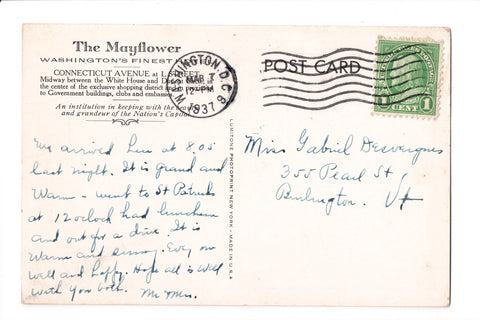 The Mayflower
WASHINGTON'S FINEST HOTEL
CONNECTICUT AVENUE at L STREET
Midway between the White House and Dupont Circle, in
the center of the exclusive shopping district and in proximity
to Government buildings, clubs and embassies
An institution in keeping with the beauty
and grandeur of the Nation's Capital
We arrived here at 8.05
last night. It is grand and
warm - went to St Patricks
at 12 oclock had luncheon
and out for a drive. It is
warm and sunny. Every one
well and happy. Hope all is well
with you both.
LUMITONE PHOTOPRINT NEW YORK - MADE IN U.S.A.
WASHINGTON, D.C.
MAR
12-PM
1937
POST CARD
1 CENT 1
Miss Gabriel Desvergnes
355 Pearl St
Burlington. Vt